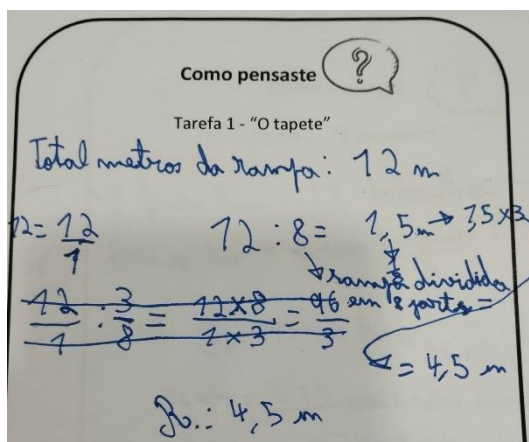 Como pensaste ?
Tarefa 1 - "O tapete"
Total metros da rampa: 12 m
12 = 12/1
12 : 8 = 1,5 m → 1,5 x 3
↓ rampa dividida
em 8 parts =
12/1 : 3/8 = 12x8/1x3 = 96/3
= 4,5 m
R.: 4,5 m